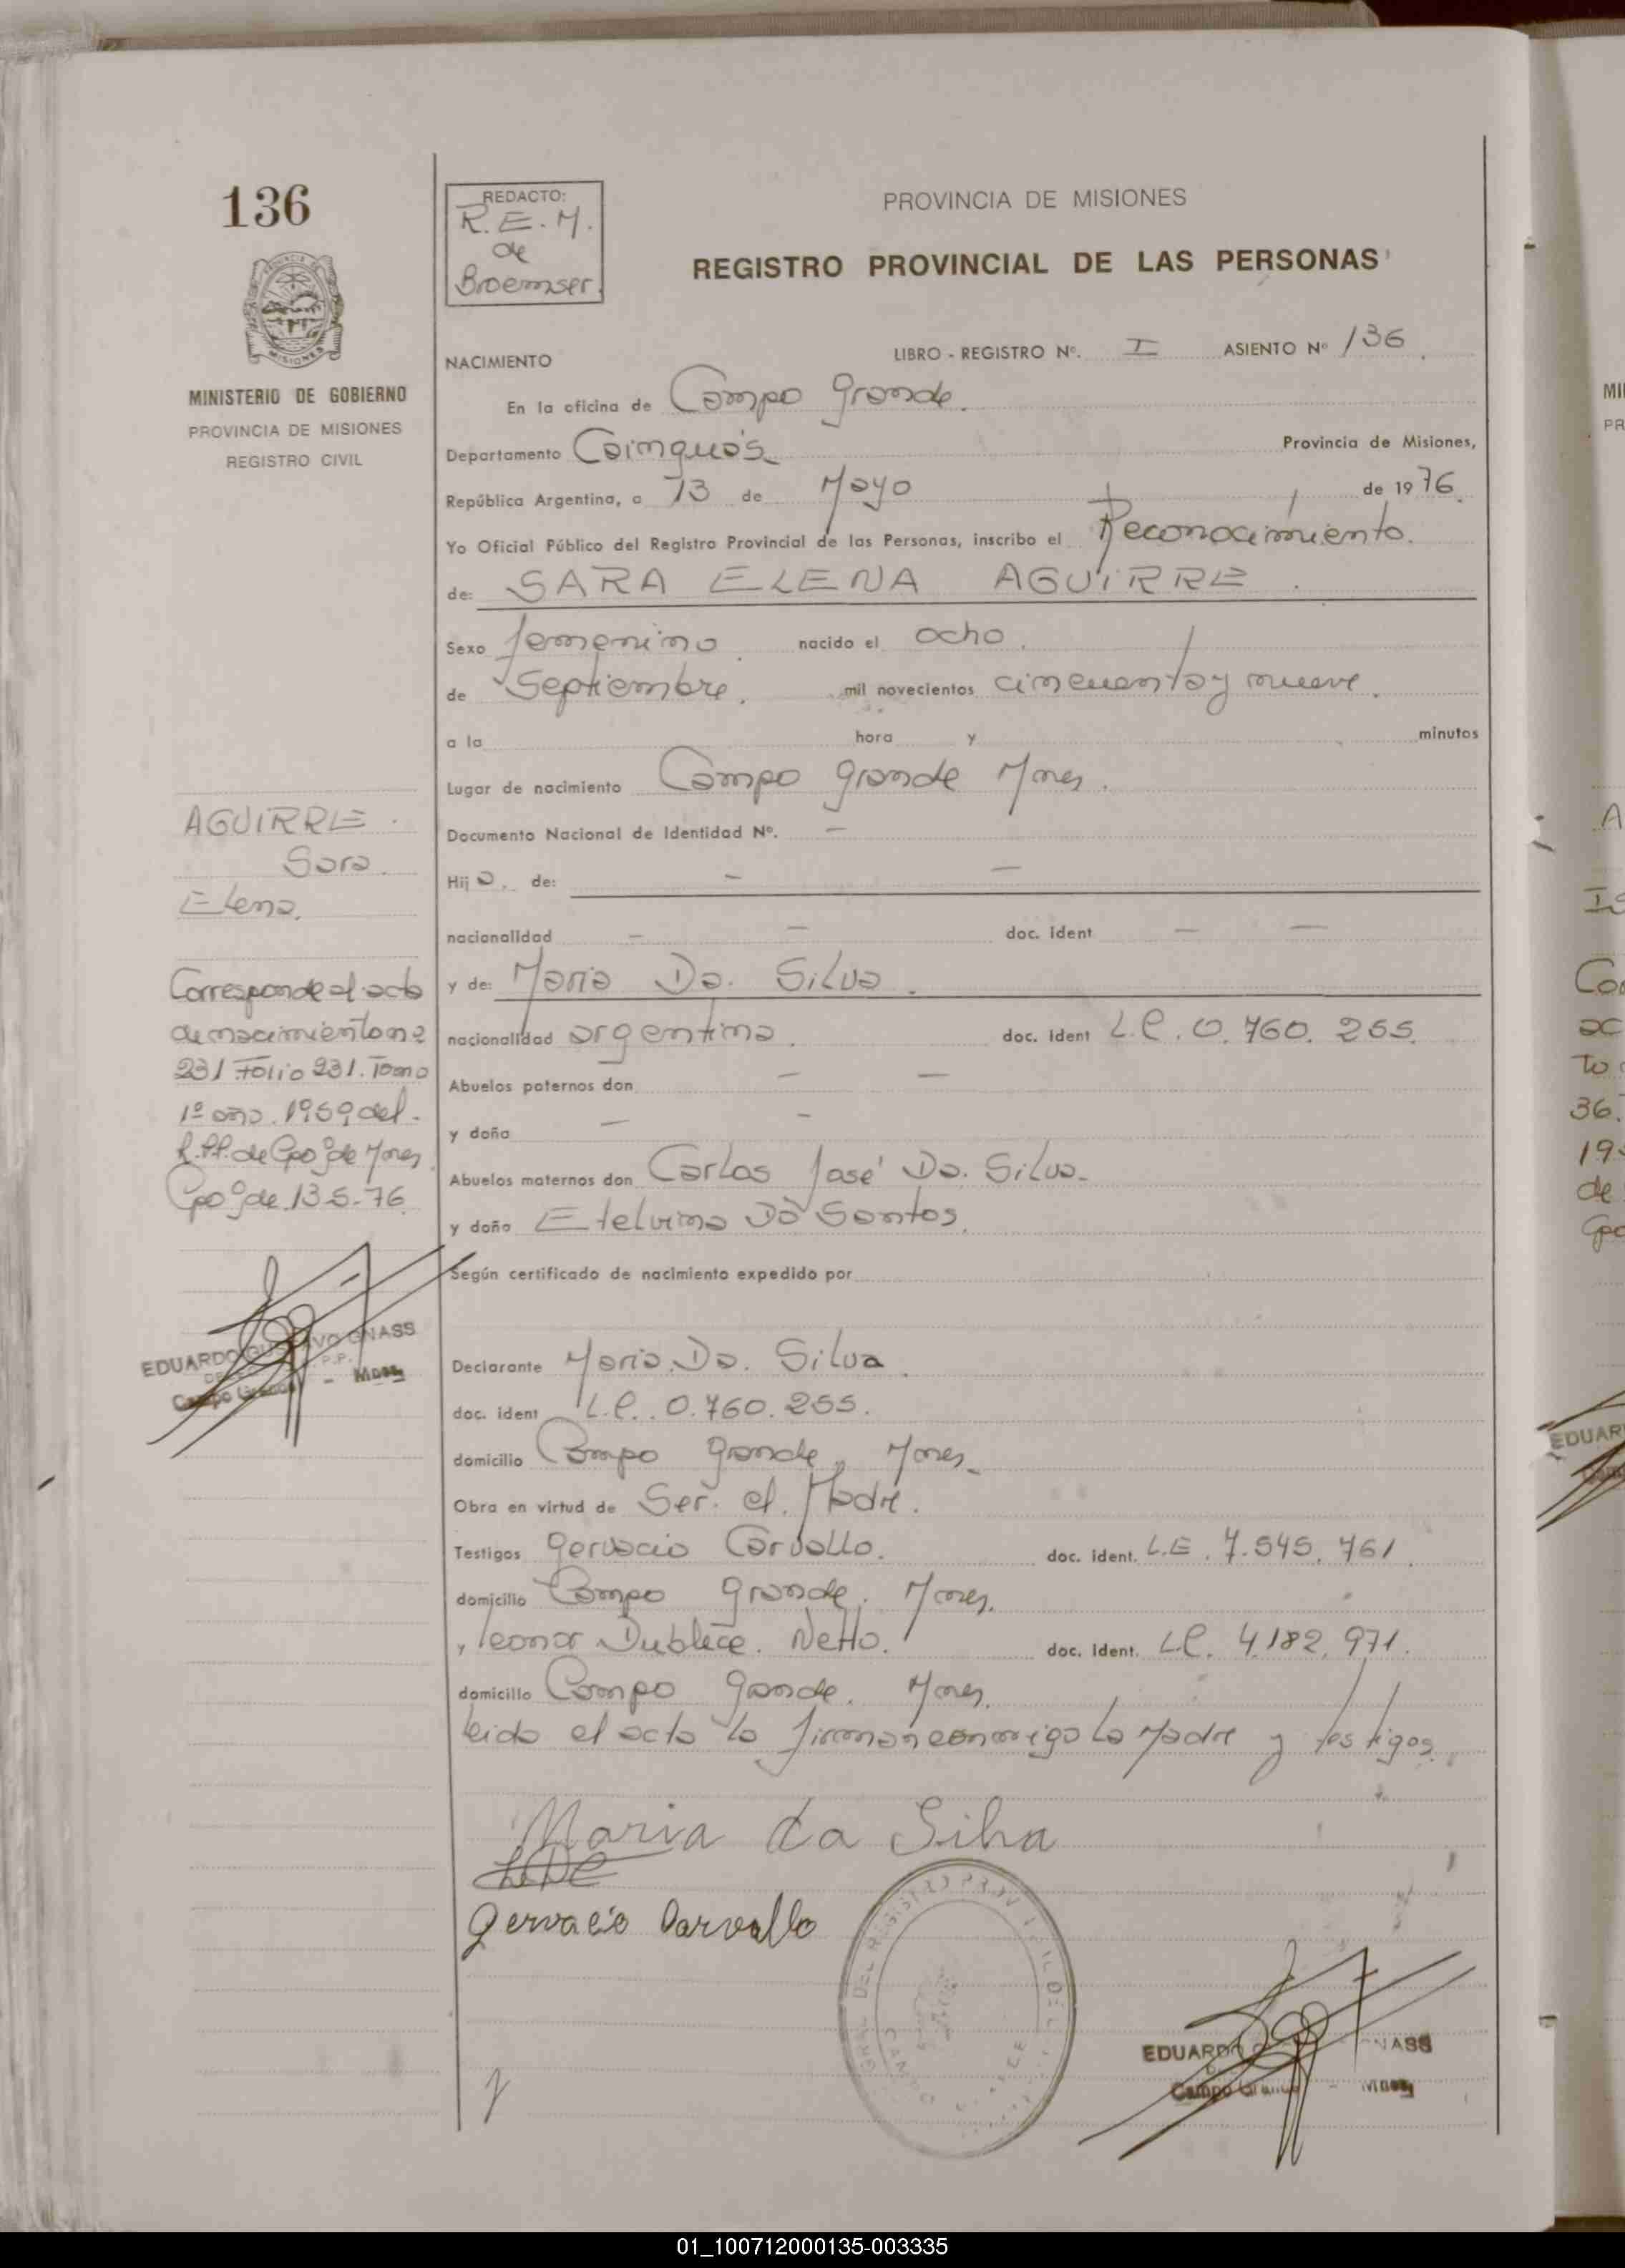 136
REDACTO:
R.E.M.
de
Broemser.
PROVINCIA DE MISIONES
REGISTRO PROVINCIAL DE LAS PERSONAS
MINISTERIO DE GOBIERNO
PROVINCIA DE MISIONES
REGISTRO CIVIL
NACIMIENTO LIBRO - REGISTRO Nº. I ASIENTO Nº 136
En la oficina de Campo Grande.
Departamento Cainguás Provincia de Misiones,
República Argentina, a 13 de Mayo de 1976.
Yo Oficial Público del Registro Provincial de las Personas, inscribo el Reconocimiento.
de: SARA ELENA AGUIRRE.
Sexo femenino. nacido el ocho.
de Septiembre. mil novecientos cincuenta y nueve.
a la hora y minutos
Lugar de nacimiento Campo Grande Mnes.
Documento Nacional de Identidad Nº. —
Hija. de: — —
nacionalidad — — doc. ident — —
y de: Maria Da. Silva.
nacionalidad argentina. doc. ident L.C. 0.760.255.
Abuelos paternos don — —
y doña — —
Abuelos maternos don Carlos José Da. Silva-
y doña Etelvina Do Santos.
Según certificado de nacimiento expedido por
Declarante Maria. Da. Silva.
doc. ident L.C. 0.760.255.
domicilio Campo Grande, Mnes.
Obra en virtud de Ser. el. Madre.
Testigos Gervacio Carvallo. doc. ident. L.E. 7.545.761.
domicilio Campo Grande. Mnes.
y Leonor Netto. doc. ident. L.C. 4.182.971.
domicilio Campo Grande. Mnes.
leida el acta la firman conmigo la Madre y testigos.
Maria da Silva
Gervacio Carvallo
AGUIRRE.
Sara.
Elena.
Corresponde al acta
de nacimiento nº
231 Folio 231. Tomo
1º año. 1959 del.
R.P.P. de Cpo Gde Mnes.
Cpo Gde. 13-5-76.
EDUARDO GUSTAVO GNASS
Campo Grande - Mnes
EDUARDO GNASS
Campo Grande - Mnes
EDUAR
01_100712000135-003335